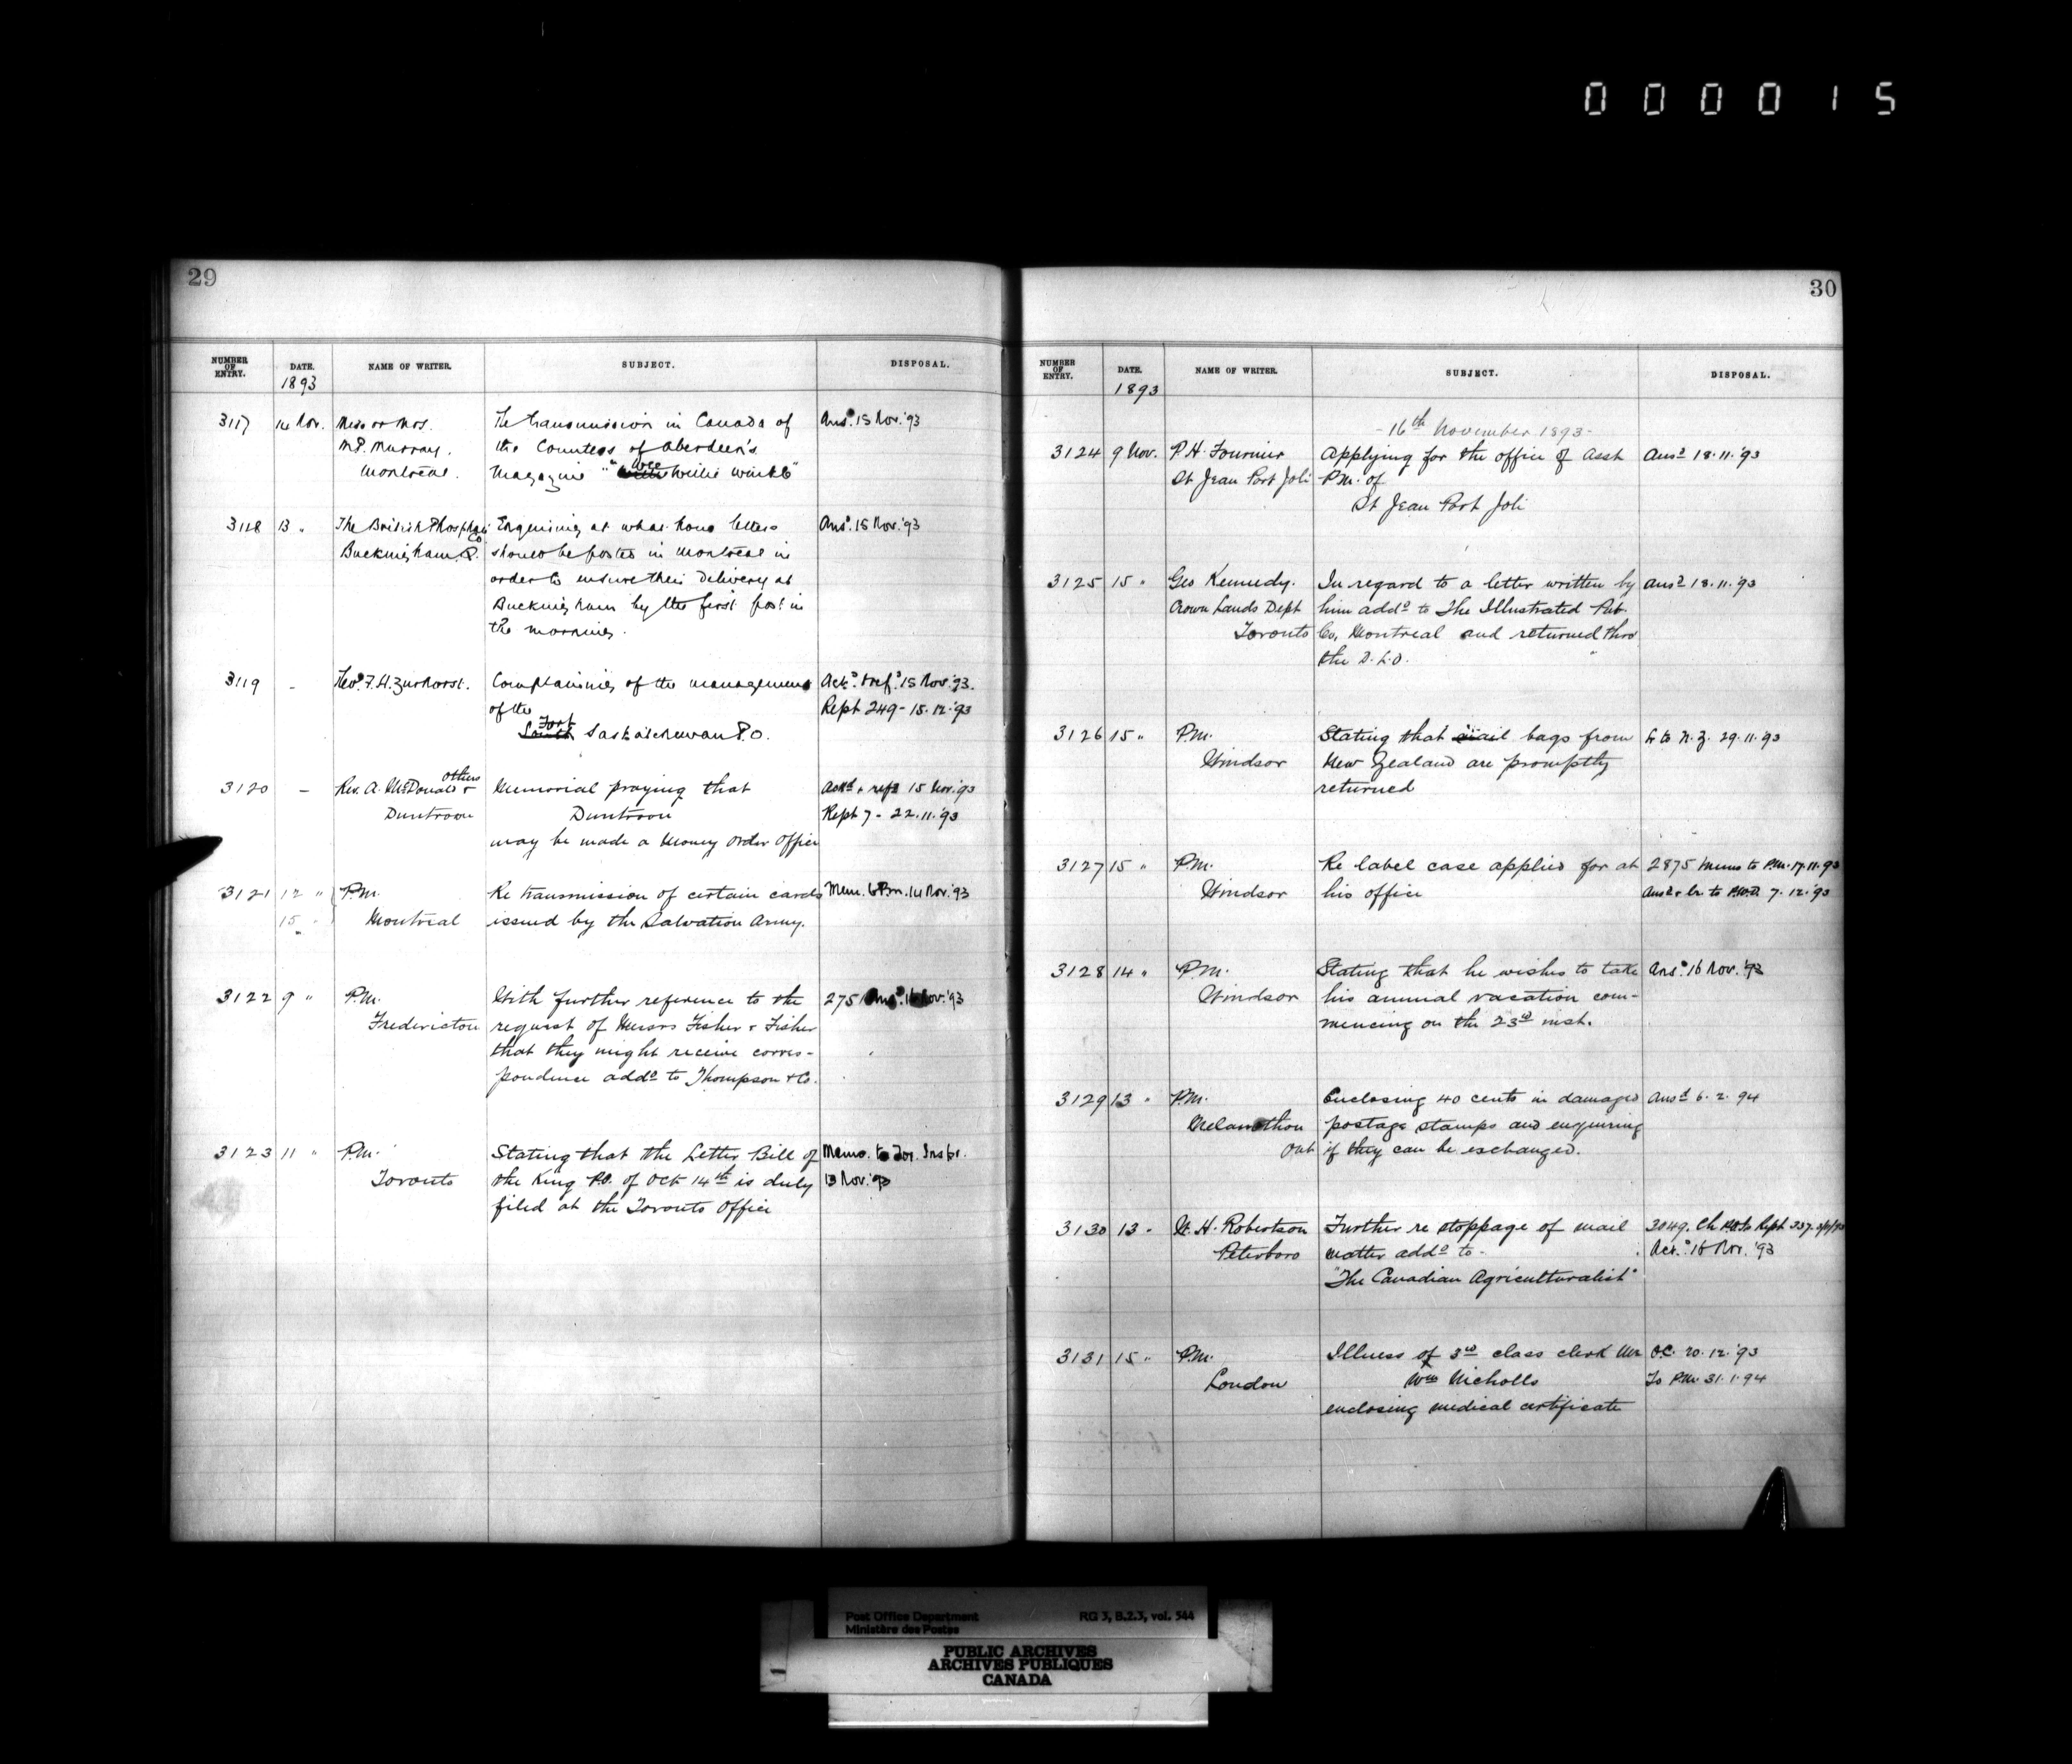 000015
29
NUMBER OF ENTRY. DATE. NAME OF WRITER. SUBJECT. DISPOSAL.
1893
3117 14 Nov. Miss or Mrs. The transmission in Canada of Ansd. 15 Nov. '93
M.P. Murray. the Countess of Aberdeen's
Montreal. Magazine "Wee Willie Winkie"
3118 13 " The British Phosphate Co. Enquiring at what hour letters Ansd. 15 Nov. '93
Buckingham Q. should be posted in Montreal in
order to ensure their delivery at
Buckingham by the first post in
the morning.
3119 - Revd. F.H. Zurhorst. Complaining of the management Ackd. & refd. 15 Nov. '93.
of the Rept 249 - 15.12.'93
South Fort Saskatchewan P.O.
3120 - Rev. A. McDonald & others Memorial praying that Ackd. & refd 15 Nov. '93
Duntroon Duntroon Rept 7 - 22.11.'93
may be made a Money Order Office
3121 12 " P.M. Re transmission of certain cards Mem. to P.M. 14 Nov. '93
15 " Montreal issued by the Salvation Army.
3122 9 " P.M. With further reference to the 2751 Ansd. 16 Nov. '93
Fredericton request of Messrs Fisher & Fisher
that they might receive corres-
pondence addd to Thompson & Co.
3123 11 " P.M. Stating that the Letter Bill of Memo. to Tor. Inspr.
Toronto the King P.O. of Oct 14th is duly 13 Nov. '93
filed at the Toronto Office
30
NUMBER OF ENTRY. DATE. NAME OF WRITER. SUBJECT. DISPOSAL.
1893
- 16th November 1893 -
3124 9 Nov. P.H. Fournier Applying for the office of Asst Ansd 18.11.'93
St Jean Port Joli P.M. of
St Jean Port Joli
3125 15 " Geo Kennedy. In regard to a letter written by Ansd 18.11.93
Crown Lands Dept him addd to The Illustrated Pub.
Toronto Co. Montreal and returned thro
the D.L.O.
3126 15 " P.M. Stating that mail bags from L to N.Z. 29.11.93
Windsor New Zealand are promptly
returned
3127 15 " P.M. Re label case applied for at 2875 Memo to P.M. 17.11.93
Windsor his office Ansd & Lr. to P.W.D. 7.12.'93
3128 14 " P.M. Stating that he wishes to take Ansd. 16 Nov. '93
Windsor his annual vacation com-
mencing on the 23rd inst.
3129 13 " P.M. Enclosing 40 cents in damaged Ansd 6.2.94
Melancthon postage stamps and enquiring
Ont if they can be exchanged.
3130 13 " W.H. Robertson Further re stoppage of mail 3049. Rept 337.
Peterboro matter addd to - Ack. 16 Nov. '93
"The Canadian Agriculturalist"
3131 15 " P.M. Illness of 3rd class clerk Mr O.C. 20.12.'93
London Wm Nicholls To P.M. 31.1.94
enclosing medical certificate
Post Office Department RG 3, B.2.3, vol. 544
Ministère des Postes
PUBLIC ARCHIVES
ARCHIVES PUBLIQUES
CANADA